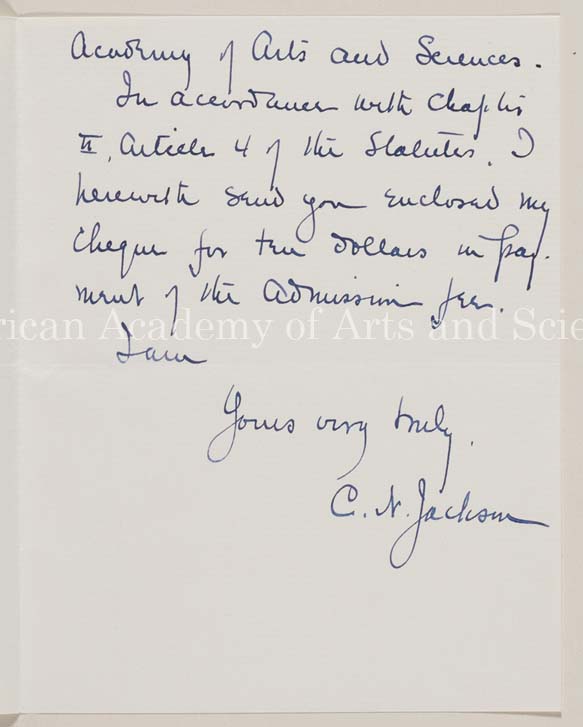 Academy of Arts and Sciences.
In accordance with Chapter
II, Article 4 of the Statutes, I
herewith send you enclosed my
cheque for ten dollars in pay-
ment of the Admission fee.
rican Academy of Arts and Scie
I am
Yours very truly,
C. N. Jackson